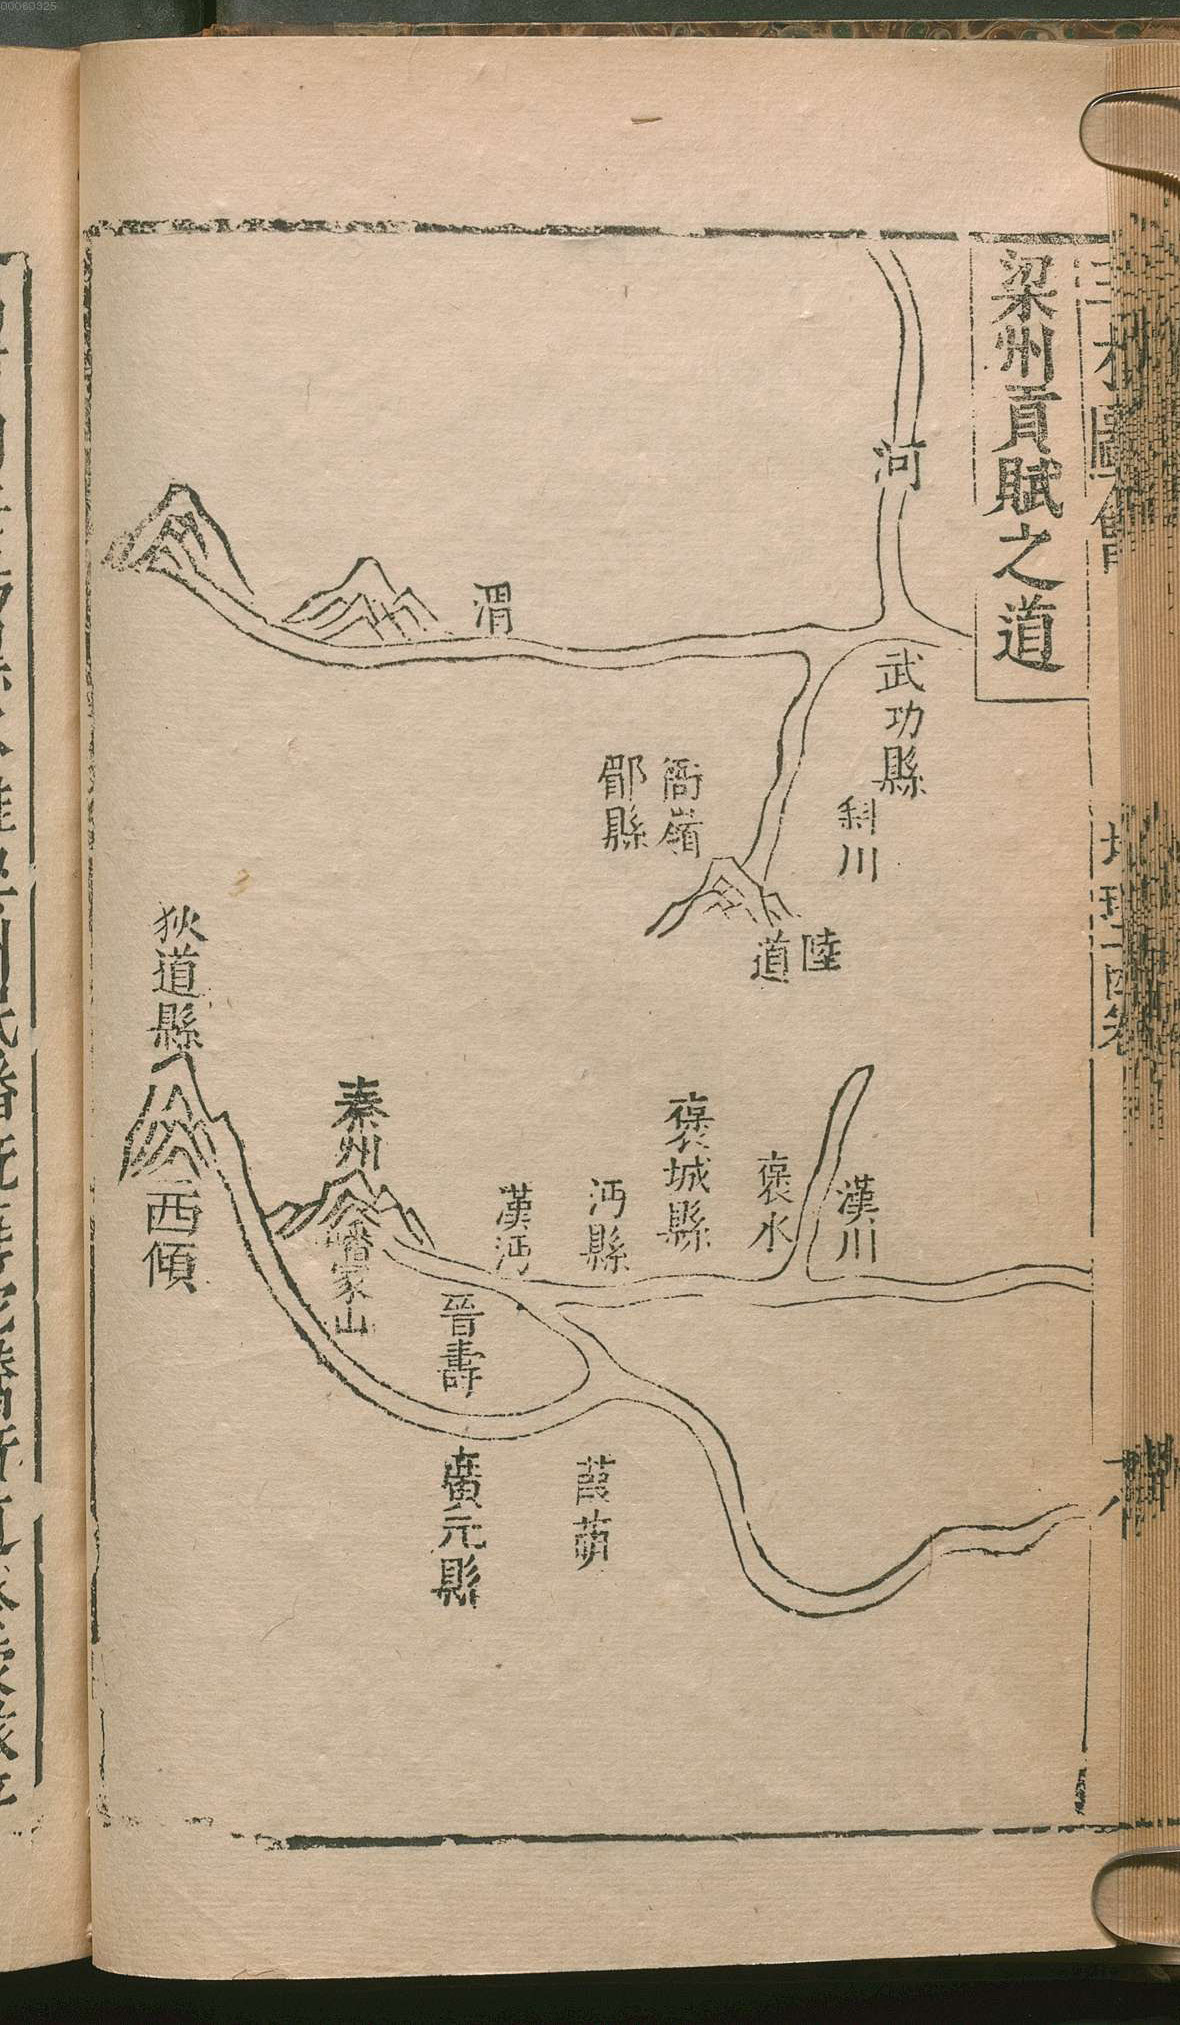 00060325
梁州貢賦之道
河
渭
武功縣
斜川
衙嶺
郿縣
陸
道
狄道縣
西傾
秦州
嶓冢山
漢沔
沔縣
褒城縣
褒水
漢川
晉壽
廣元縣
葭萌